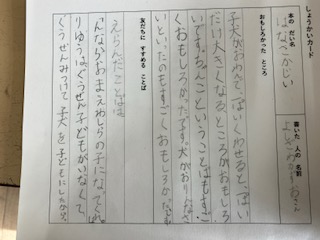 しょうかいカード
本の だい名
はなさかじい
書いた 人の 名前
おもしろかった ところ
子犬がおわんで一ぱいくわせると、一ぱい
だけ大きくなるところがおもしろ
いです。
ということばもすご
くおもしろかったです。犬が
といったのもすごくおもしろかった
友だちに すすめる ことば
えらんだことばは
「こんなら、おまえわしらの子になってくれ。」
りゆうは、ぐうぜん子どもがいなくて、
ぐうぜんみつけて子犬を子どもにしたから。